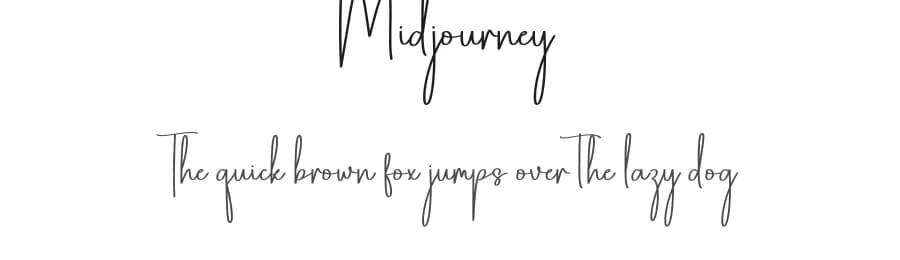 Midjourney
The quick brown fox jumps over The lazy dog